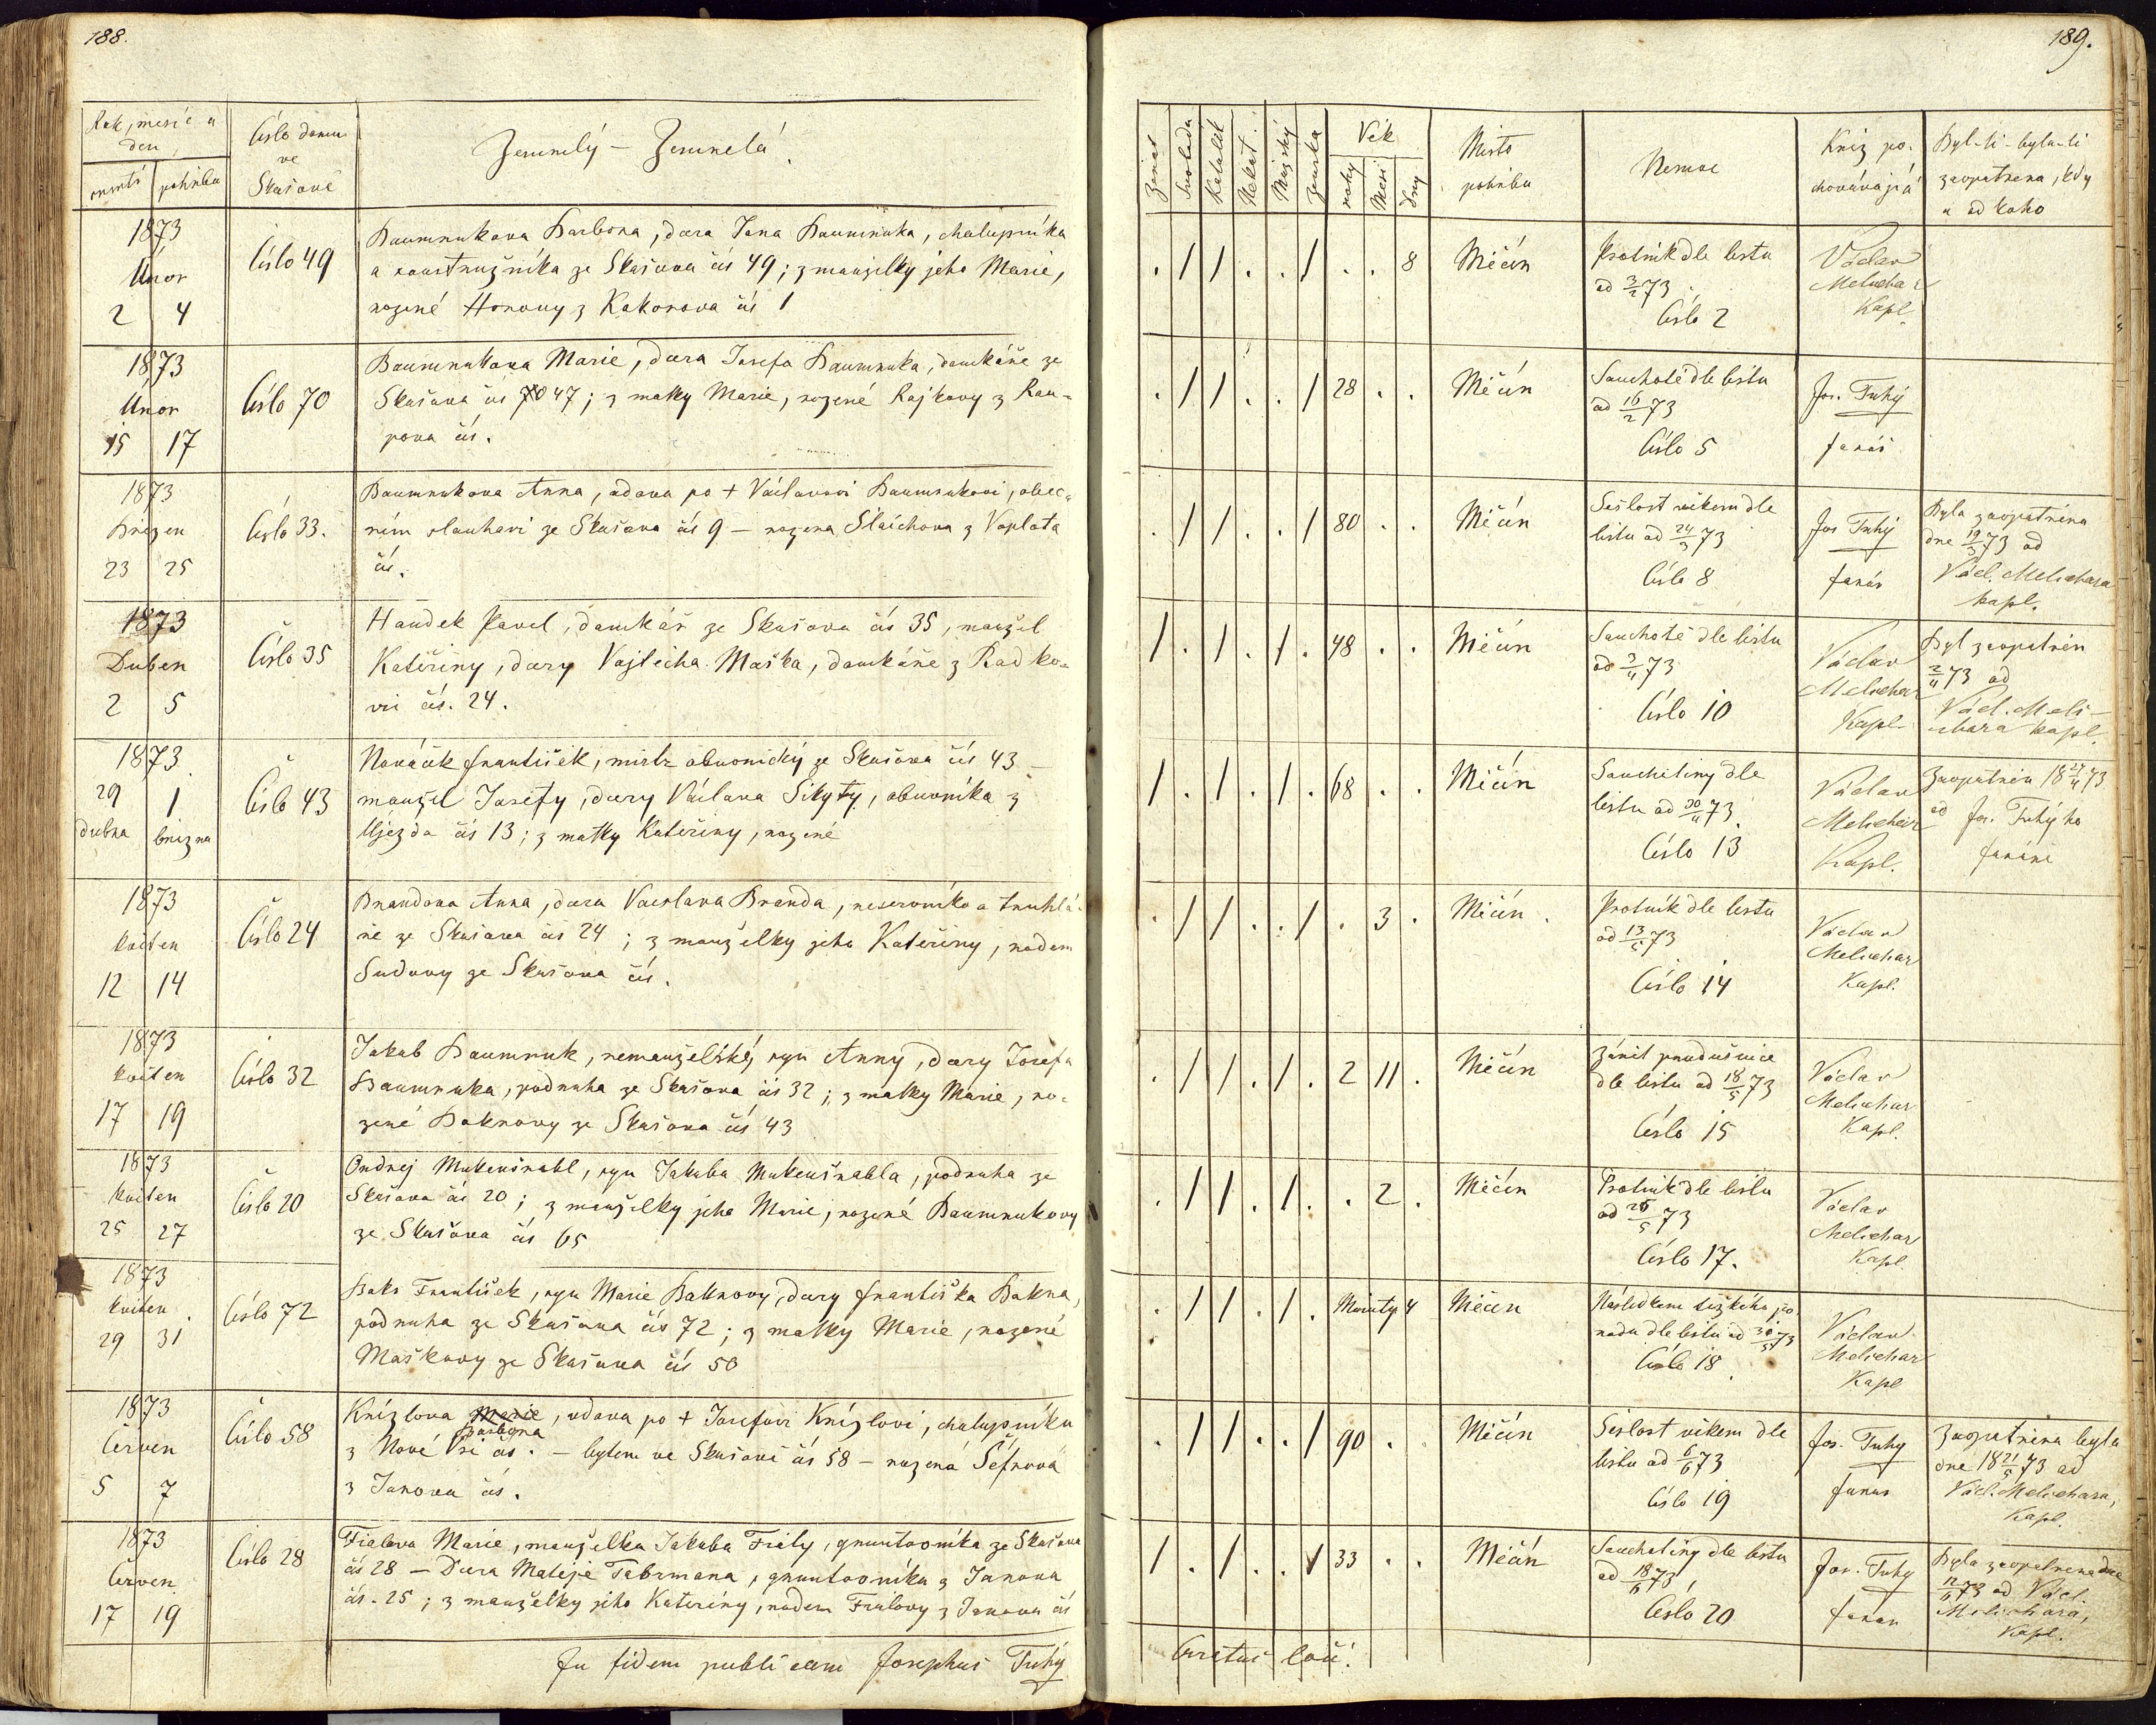 188.
Rok, měsíc a
den
úmrtí pohřbu
Číslo domu
ve
Skašově
Zemřelý – Zemřelá
1873
Únor
2 4
Číslo 49
Baumrukova Barbora, dcera Jana Baumruka, chalupníka
a soustružníka ze Skašova čís 49; z manželky jeho Marie,
rozené Horovy z Kokořova čís 1
1873
Únor
15 17
Číslo 70
Baumrukova Marie, dcera Josefa Baumruka, domkáře ze
Skašova čís 70 47; z matky Marie, rozené Rajkovy z Rou-
pova čís.
1873
Březen
23 25
Číslo 33.
Baumrukova Anna, vdova po + Václavovi Baumrukovi, obec-
ním slouhovi ze Skašova čís 9 – rozena Šlaichova z Voplota
čís.
1873
Duben
2 5
Číslo 35
Houdek Pavel, domkář ze Skašova čís 35, manžel
Kateřiny, dcery Vojtěcha Maška, domkáře z Radko-
vic čís. 24.
1873
29 1
dubna března
Číslo 43
Nováček František, mistr obuvnický ze Skašova čís 43 –
manžel Josefy, dcery Václava Sikyty, obuvníka z
Újezda čís 13; z matky Kateřiny, rozené
1873
květen
12 14
Číslo 24
Brandova Anna, dcera Vacslava Branda, reservníka a truhlá-
ře ze Skašova čís 24; z manželky jeho Kateřiny, rodem
Sudovy ze Skašova čís.
1873
květen
17 19
Číslo 32
Jakub Baumruk, nemanželský syn Anny, dcery Josefa
Baumruka, podruha ze Skašova čís 32; z matky Marie, ro-
zené Boknovy ze Skašova čís 43
1873
květen
25 27
Číslo 20
Ondřej Mukenšnabl, syn Jakuba Mukenšnabla, podruha ze
Skašova čís 20; z manželky jeho Marie, rozené Baumrukovy
ze Skašova čís 65
1873
květen
29 31
Číslo 72
Boks František, syn Marie Boknovy, dcery Františka Bokna,
podruha ze Skašova čís 72; z matky Marie, rozené
Maškovy ze Skašova čís 50
1873
Červen
5 7
Číslo 58
Knízlova Marie, vdova po + Josefovi Knízlovi, chalupníku
Barbora
z Nové Vsi čís. – bytem ve Skašově čís 58 – rozená Šefrnová
z Janova čís.
1873
Červen
17 19
Číslo 28
Fialova Marie, manželka Jakuba Fialy, gruntovníka ze Skašova
čís 28 – Dcera Matěje Tabrmana, gruntovníka z Janova
čís. 25; z manželky jeho Kateřiny, rodem Fialovy z Janova čís
In fidem publicam Josephus Tuhý
189.
Ženat
Svoboda
Katolík
Nekat.
Mužský
Ženská
Věk
roky
Měsí
dny
Místo
pohřbu
Nemoc
Kněz po-
chovávající
Byl-li – byla-li
zaopatřena, kdy
a od koho
. / / . . / . . 8
Měčín
Psotník dle listu
od 3/2 73
Číslo 2
Václav
Melichar
Kapl.
. / / . . / 28 . .
Měčín
Souchotě dle listu
od 16/2 73
Číslo 5
Jos. Tuhý
farář
. / / . . / 80 . .
Měčín
Sešlost věkem dle
listu od 24/3 73
Číslo 8
Jos Tuhý
farář
Byla zaopatřena
dne 19/3 73 od
Václ. Melichara
kapl.
/ . / . / . 48 . .
Měčín
Souchotě dle listu
od 3/4 73
Číslo 10
Václav
Melichar
Kapl.
Byl zaopatřen
2/4 73 od
Václ. Meli-
chara kapl.
/ . / . / . 68 . .
Měčín
Souchotiny dle
listu od 30/4 73
Číslo 13
Václav
Melichar
Kapl.
Zaopatřen 18 27/4 73
od Jos. Tuhýho
faráře
. / / . . / . 3 .
Měčín.
Psotník dle listu
od 13/5 73
Číslo 14
Václav
Melichar
Kapl.
. / / . / . 2 11 .
Měčín
Zánět průdušnice
dle listu od 18/5 73
Číslo 15
Václav
Melichar
Kapl.
. / / . / . . 2 .
Měčín
Psotník dle listu
od 26/5 73
Číslo 17.
Václav
Melichar
Kapl.
. / / . / . Minuty 4
Měčín
Následkem těžkého po
rodu dle listu od 30/5 73
Číslo 18
Václav
Melichar
Kapl
. / / . . / 90 . .
Měčín
Sešlost věkem dle
listu od 6/6 73
Číslo 19
Jos. Tuhý
farář
Zaopatřena byla
dne 18 21/5 73 od
Václ. Melichara,
Kapl.
/ . / . . / 33 . .
Měčín
Souchotiny dle listu
od 18/6 73
Číslo 20
Jos. Tuhý
farář
Byla zaopatřena dne
12/6 73 od Václ.
Melichara,
Kapl.
Curatus loci.